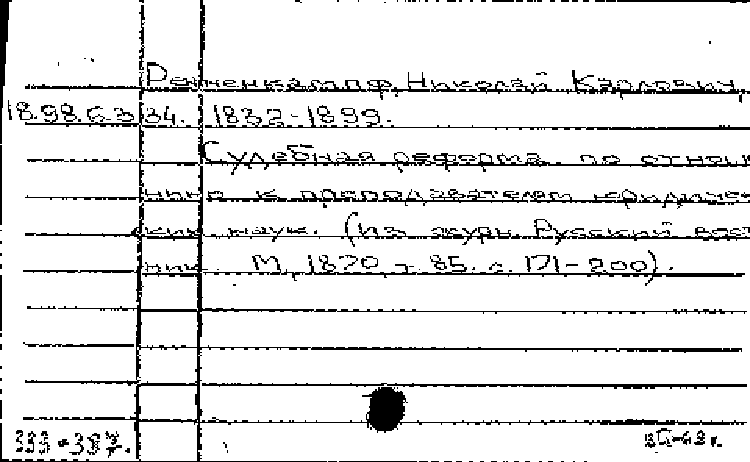 Ренненкампф, Николай Карлович,
18.98.6.3 34. 1832-1899.
Судебная реформа по отноше
нию к преподавателям юридичес
ких наук. (Из журн. Русский вест
ник. М, 1870, т. 85. с. 171-200).
333-387.